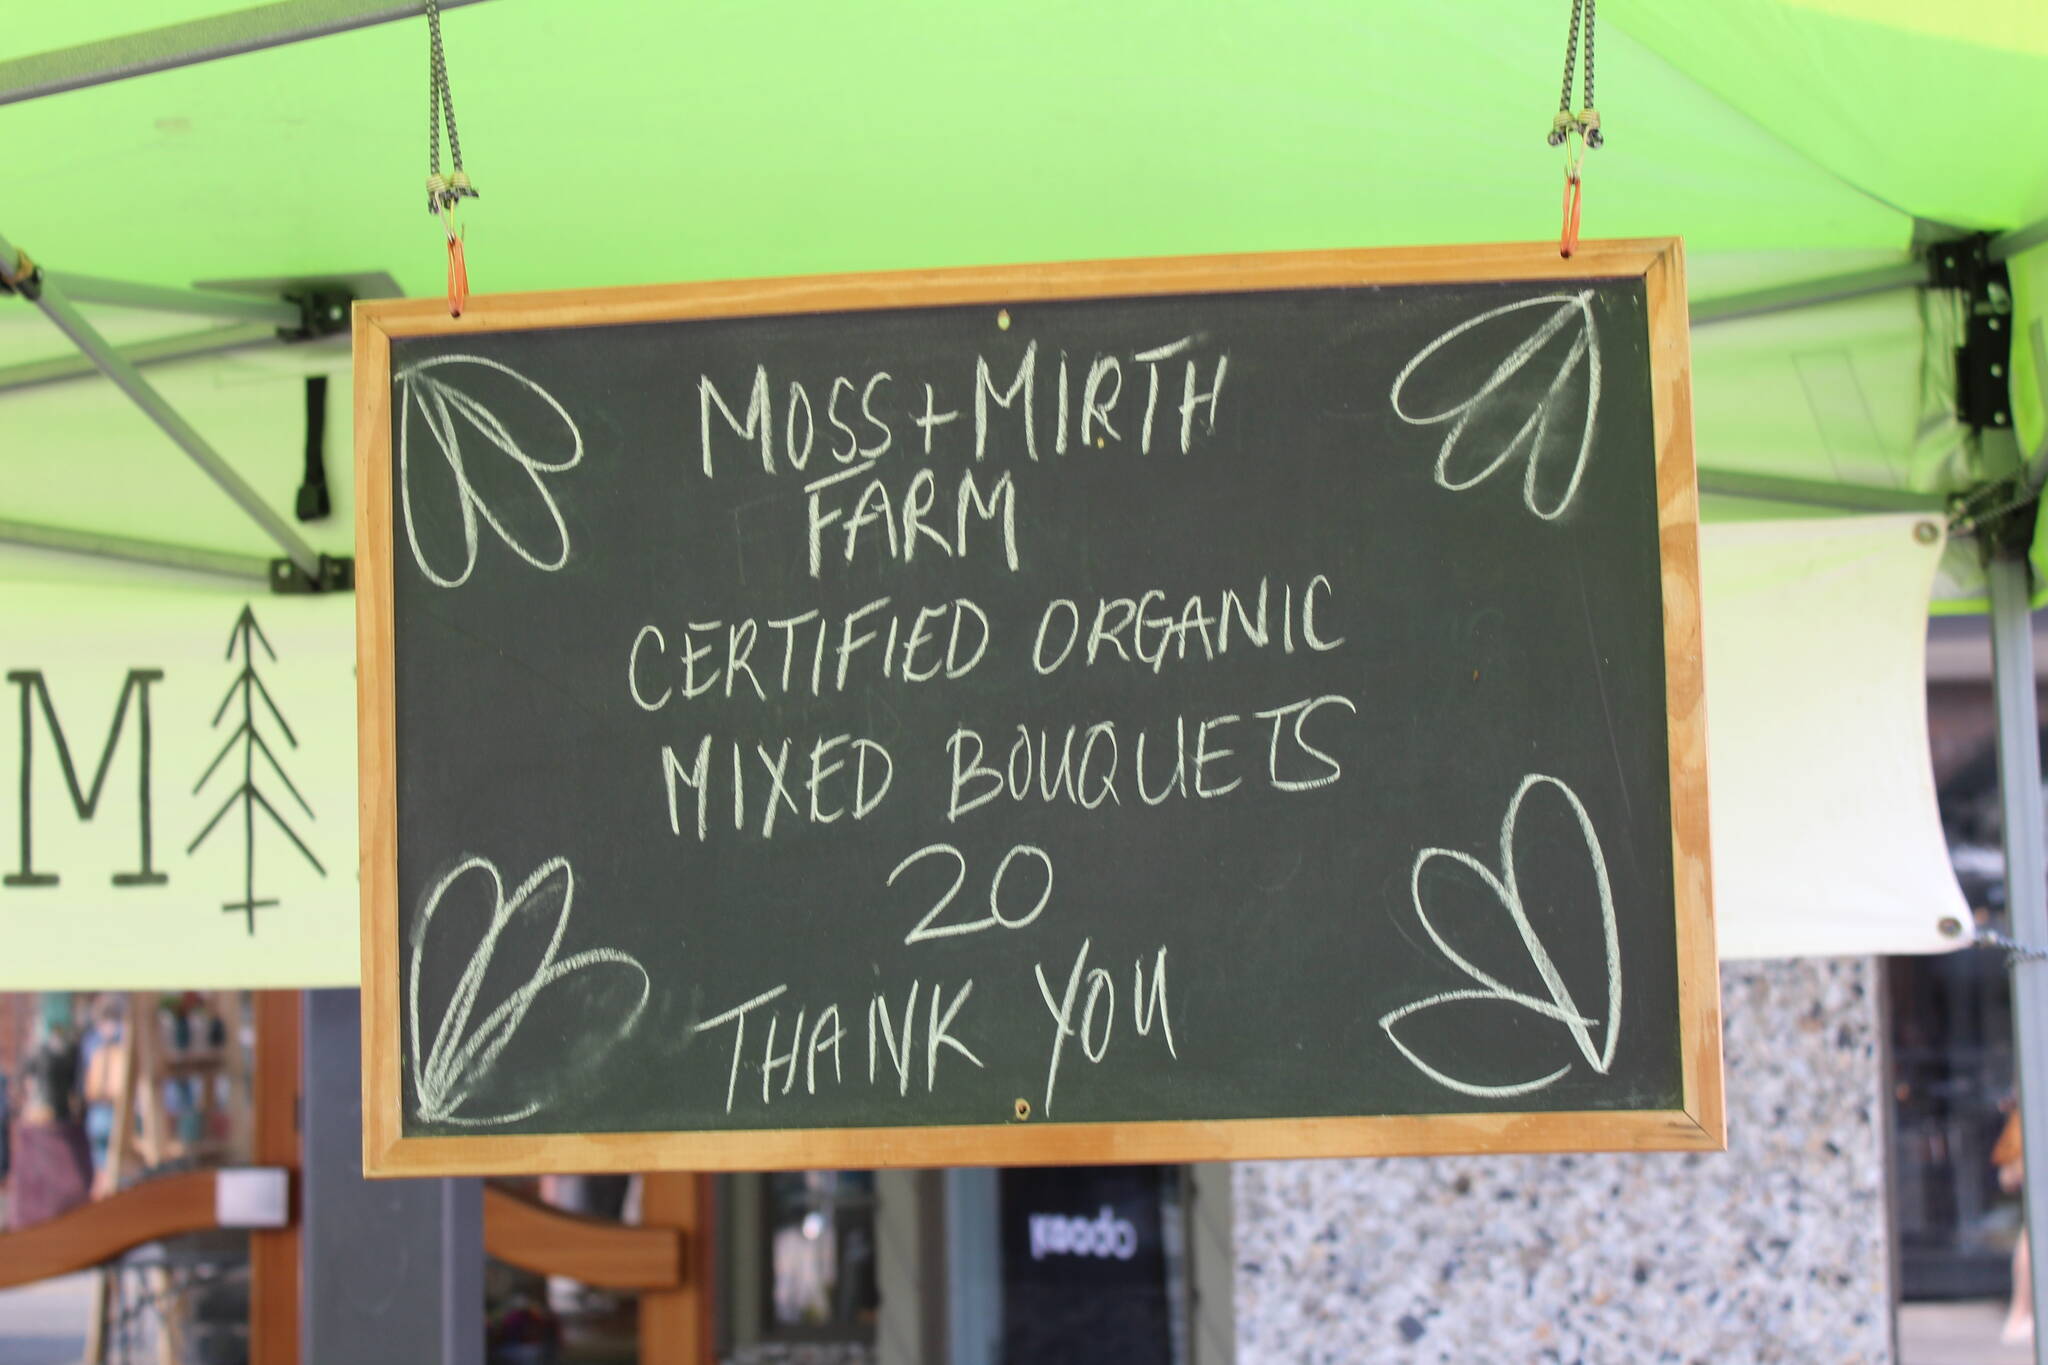 MOSS + MIRTH
FARM
CERTIFIED ORGANIC
MIXED BOUQUETS
20
THANK YOU
M